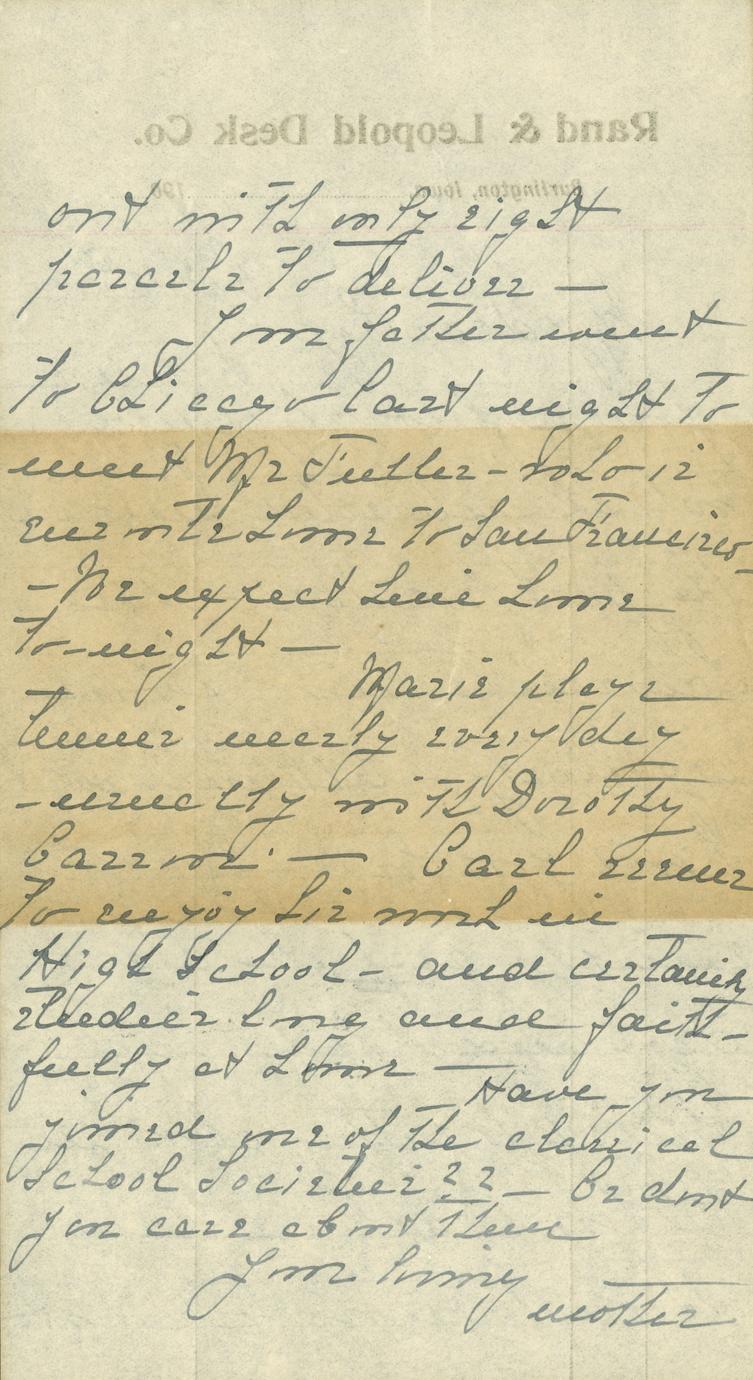 Rand & Leopold Desk Co.
Burlington, Iowa, 190
out with only eight
parcels to deliver —
Your father went
to Chicago last night to
meet Mr Fuller - who is
en route home to San Francisco
- We expect him home
to-night —
Marie plays
tennis nearly every day
- usually with Dorothy
Carson. — Carl seems
to enjoy his work in
High School - and certainly
studies long and faith-
fully at home —
Have you
joined one of the classical
School Societies ?? — Or dont
you care about them
Your loving
mother